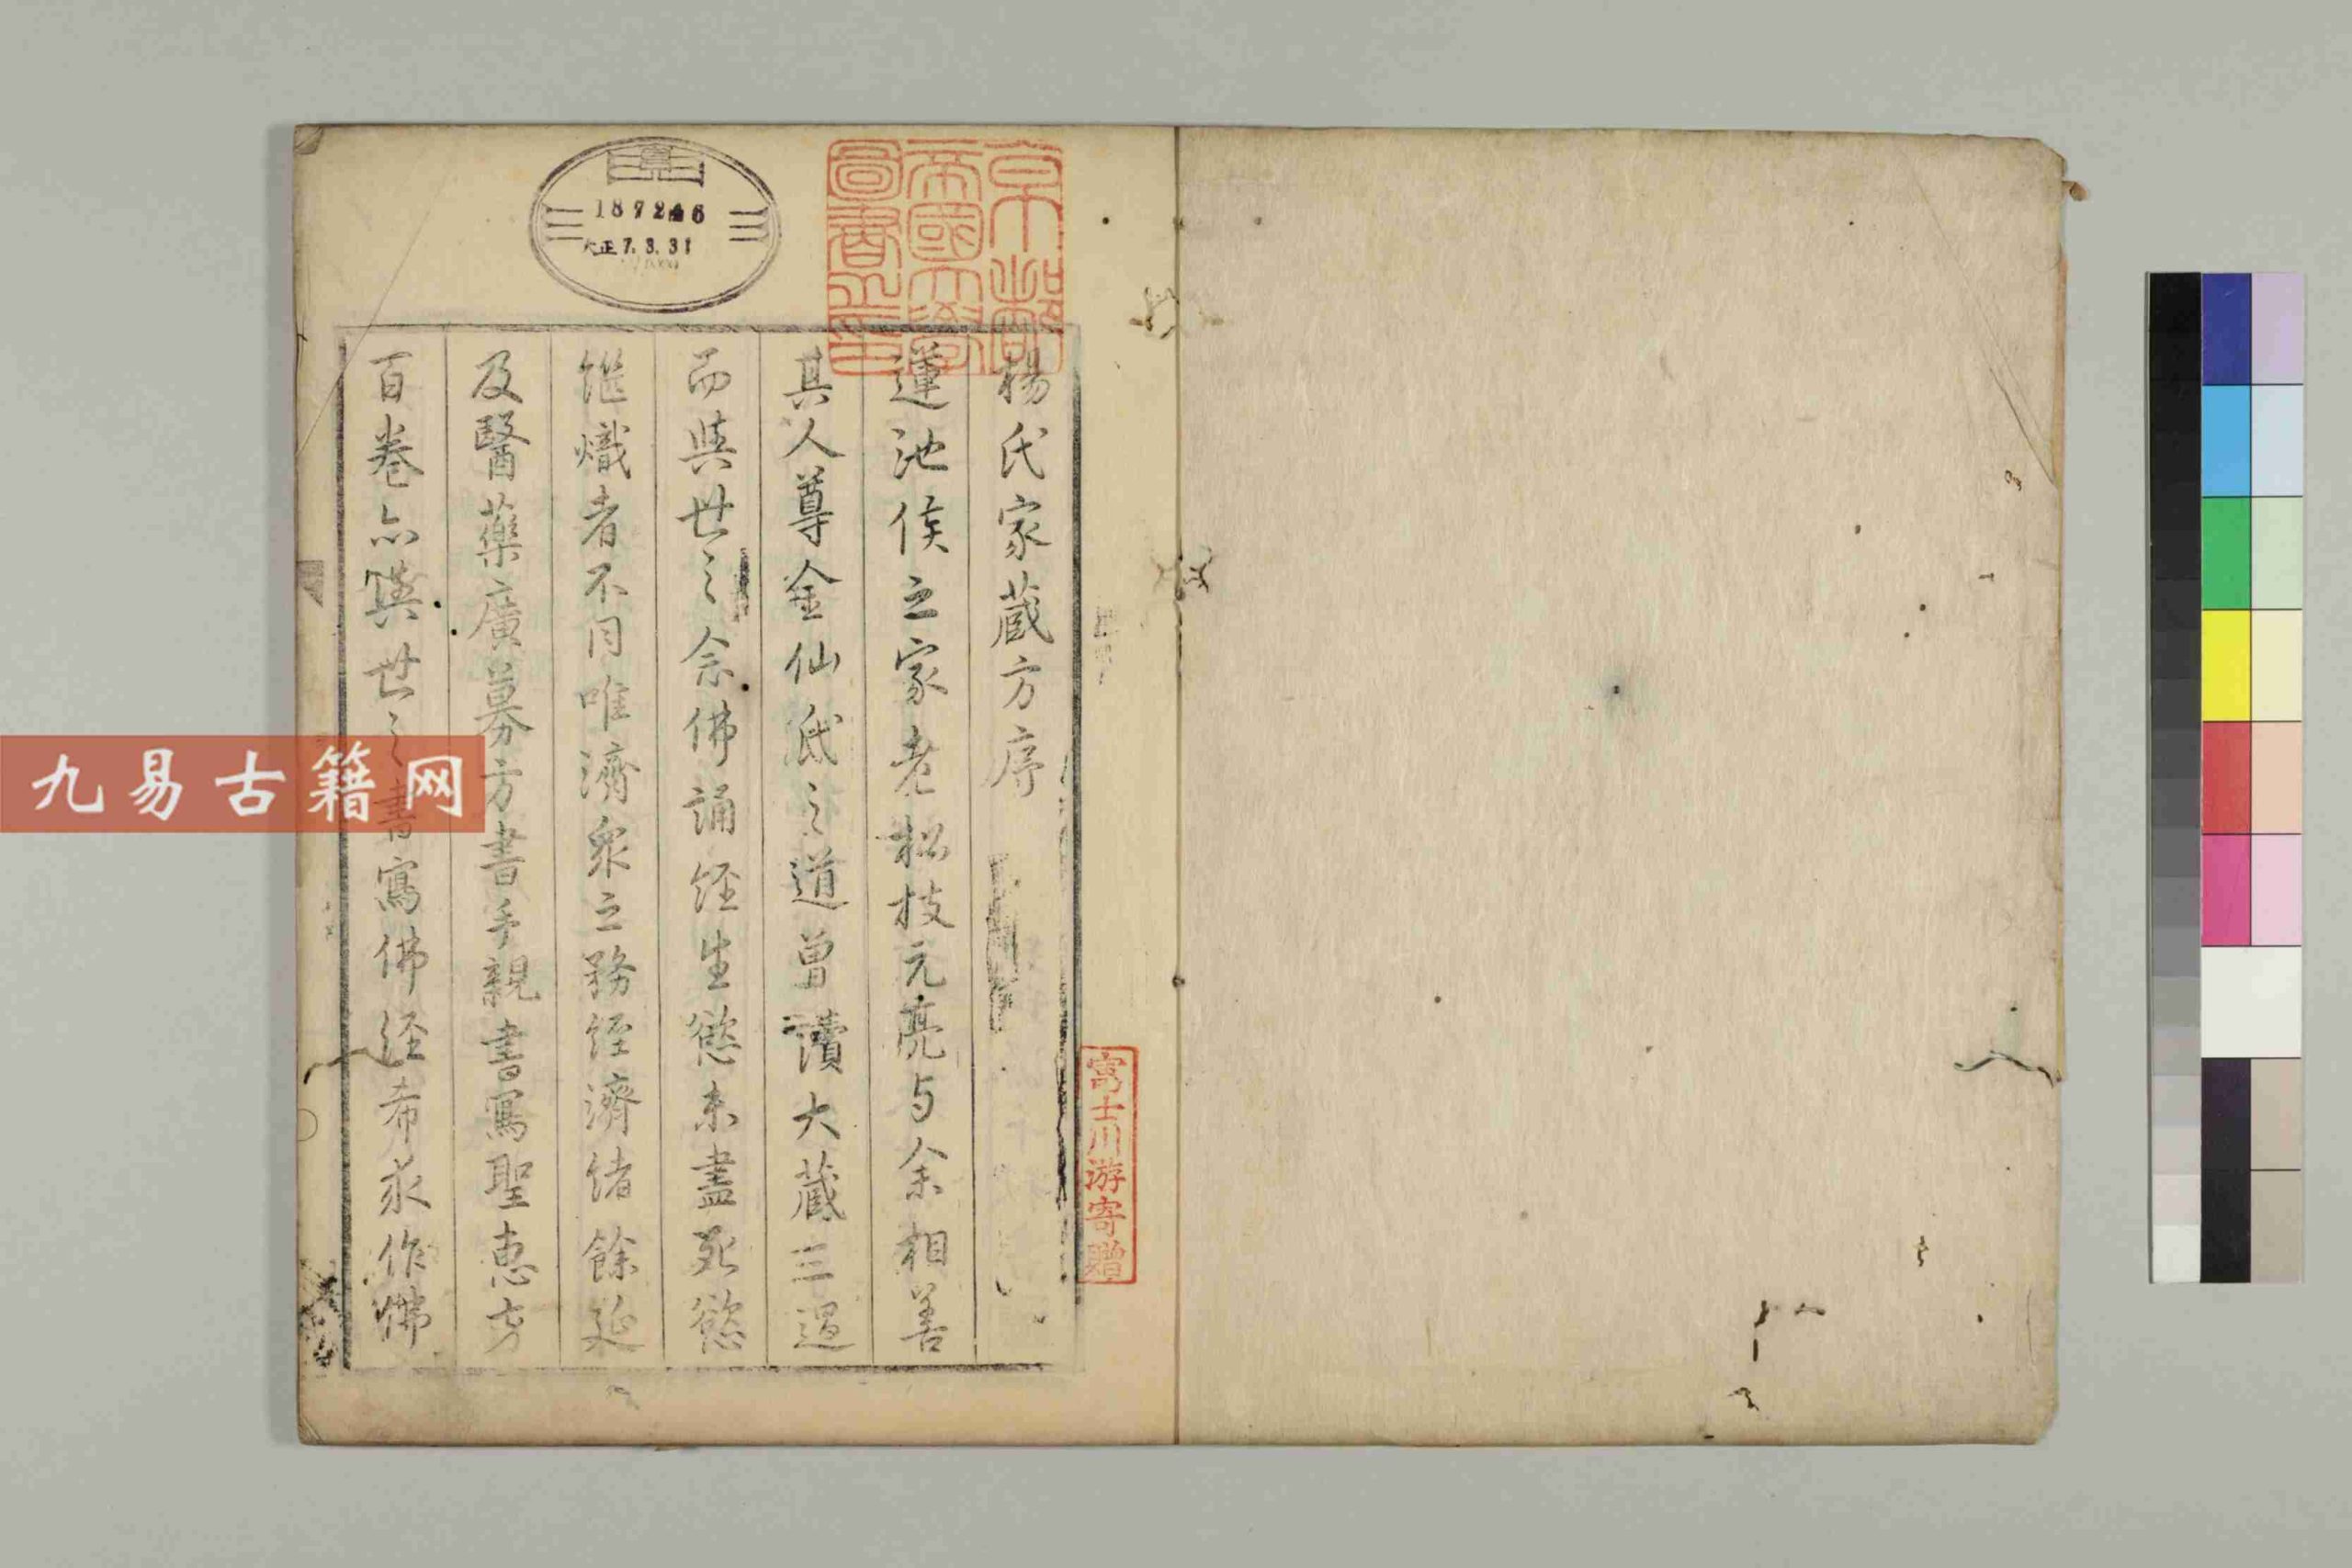 楊氏家蔵方序
蓮池侯之家老松枝元亮与余相善
其人尊金仙氏之道曽讀大蔵三遍
而與世之念佛誦経生慾未盡死慾
継熾者不同唯濟衆之務経濟緒餘延
及醫藥廣募方書手親書寫聖惠方
百卷亦與世之書寫佛経希求作佛
京都
帝國大學
圖書之印
187246
大正7.3.31
富士川游寄贈
九易古籍网